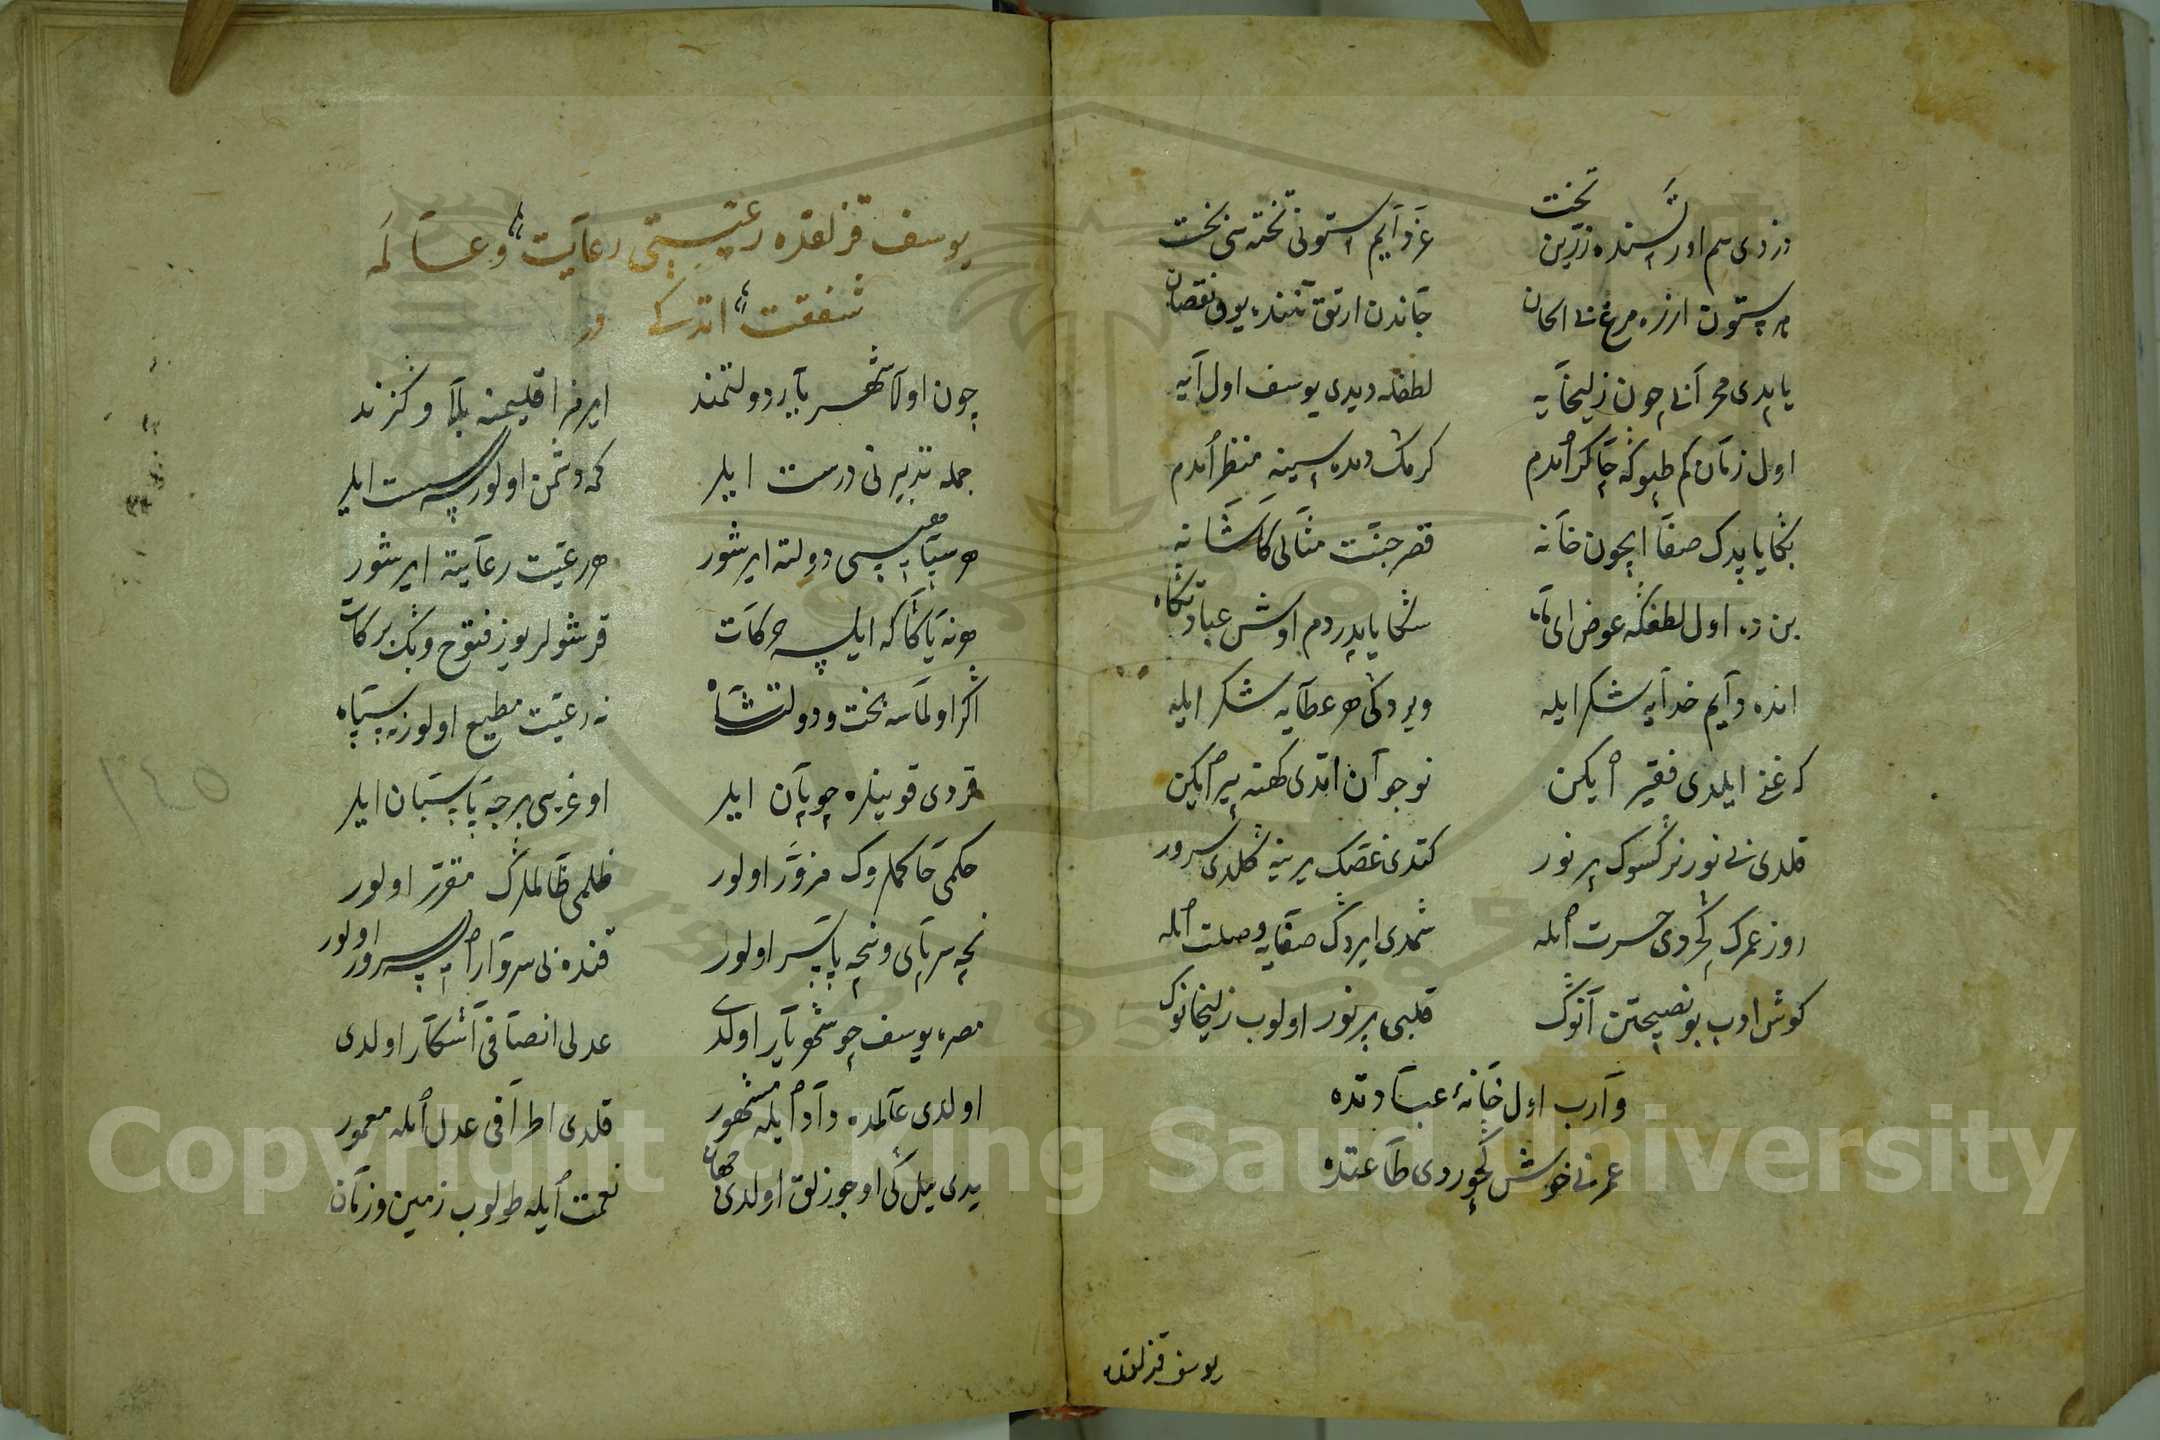 دزدی سم اورتسنده زرین تخت
عزّ دایم استونی تخته سی بخت
هر ستون ارزه مرغ نی الحان
جاندن ارتق تننده یوق نقصان
یاپدی محرابی چون زلیخایه
لطفله دیدی یوسف اول آیه
اول زمان کم طپوکه چاکر ایدم
کرمک دمده سینه منظر ایدم
بکا یاپدک صفا ایچون خانه
قصر جنّت مثالی کاشانه
بن ده اول لطفکه عوض ای ماه
سکا یاپدردم اوش عبادتکاه
انده دایم خدایه شکر ایله
ویردکی هر عطایه شکر ایله
که غنی ایلدی فقیر ایکن
نوجوان ایتدی کهنه پیر ایکن
قلدی بی نور نرکسوک پر نور
کتدی غصّک یرینه کلدی سرور
روز عمرک کچردی حسرت ایله
شمدی ایردک صفایه وصلت ایله
کوش ادب بو نصیحتن آنوک
قلبی پر نور اولوب زلیخانوک
وارب اول خانهٔ عبادتده
عمرنی خوش کچوردی طاعتده
یوسف قزلقده
یوسف قزلقده رعیّتی رعایت و عالمه
شفقت اتدکی در
چون اولا شهریار دولتمند
ایرمز اقلیمنه بلا و کزند
جمله تدبیرنی درست ایلر
که دشمن اولورسه سست ایلر
هر سپاهیسی دولته ایرشور
هر رعیّت رعایته ایرشور
هر نه یاکا که ایلیه حرکات
قرشولر یوز فتوح و بیک برکات
اکر اولماسه بخت و دولت شاه
نه رعیّت مطیع اولور نه سپاه
قردی قوینلره چوپان ایلر
اوغریسی برجه پاسبان ایلر
حکمی حاکملروک مزوّر اولور
ظلمی ظالملرک مقرّر اولور
نیچه سر پای و نیچه پا سر اولور
قنده بی سر وار ایسه سرور اولور
مصره یوسف چو شهریار اولدی
عدلی انصافی آشکار اولدی
اولدی عالمده داد ایله مشهور
قلدی اطرافی عدل ایله معمور
یدی ییل کی اوجوزلق اولدی جهان
نعمت ایله طولوب زمین و زمان
١٤٥
Copyright © King Saud University
1957